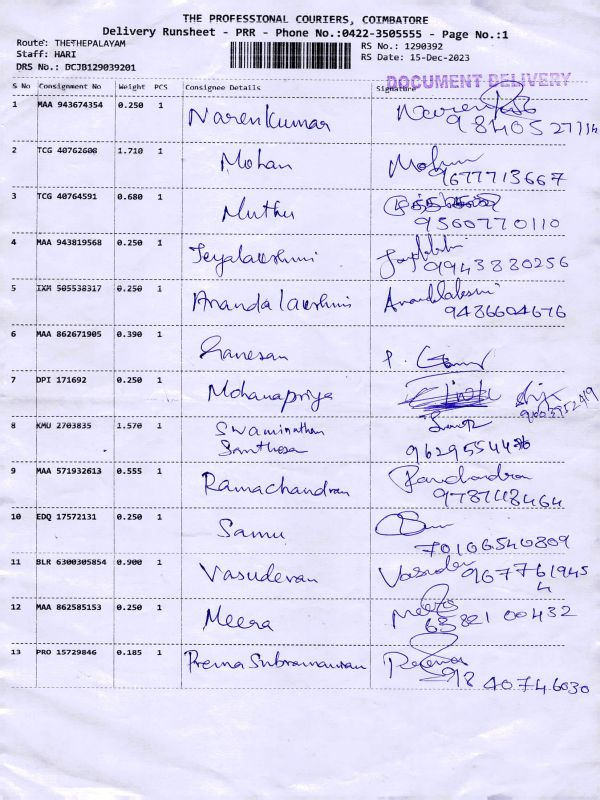 THE PROFESSIONAL COURIERS, COIMBATORE
Delivery Runsheet - PRR - Phone No.:0422-3505555 - Page No.:1
Route: THETHEPALAYAM
Staff: HARI
DRS No.: DCJB129039201
RS No.: 1290392
RS Date: 15-Dec-2023
DOCUMENT DELIVERY
S No Consignment No Weight PCS Consignee Details Signature
1 MAA 943674354 0.250 1 Narenkumar
9840527114
2 TCG 40762608 1.710 1 Mohan Mohan
9677713667
3 TCG 40764591 0.680 1 Muthu
9560770110
4 MAA 943819568 0.250 1 Jeyalakshmi
9943880256
5 IXM 505538317 0.250 1 Anandalakshmi Anandalakshmi
9486604676
6 MAA 862671905 0.390 1 Ganesan P.
7 DPI 171692 0.250 1 Mohanapriya
8 KMU 2703835 1.570 1 Swaminathan
Santhosa
9629554486
9 MAA 571932613 0.555 1 Ramachandran
9787148464
10 EDQ 17572131 0.250 1 Samu
70106540809
11 BLR 6300305854 0.900 1 Vasudevan Vasudev 967761945
4
12 MAA 862585153 0.250 1 Meera Meera
63821 00432
13 PRO 15729846 0.185 1 Prema Subramanian Prema
9840746030